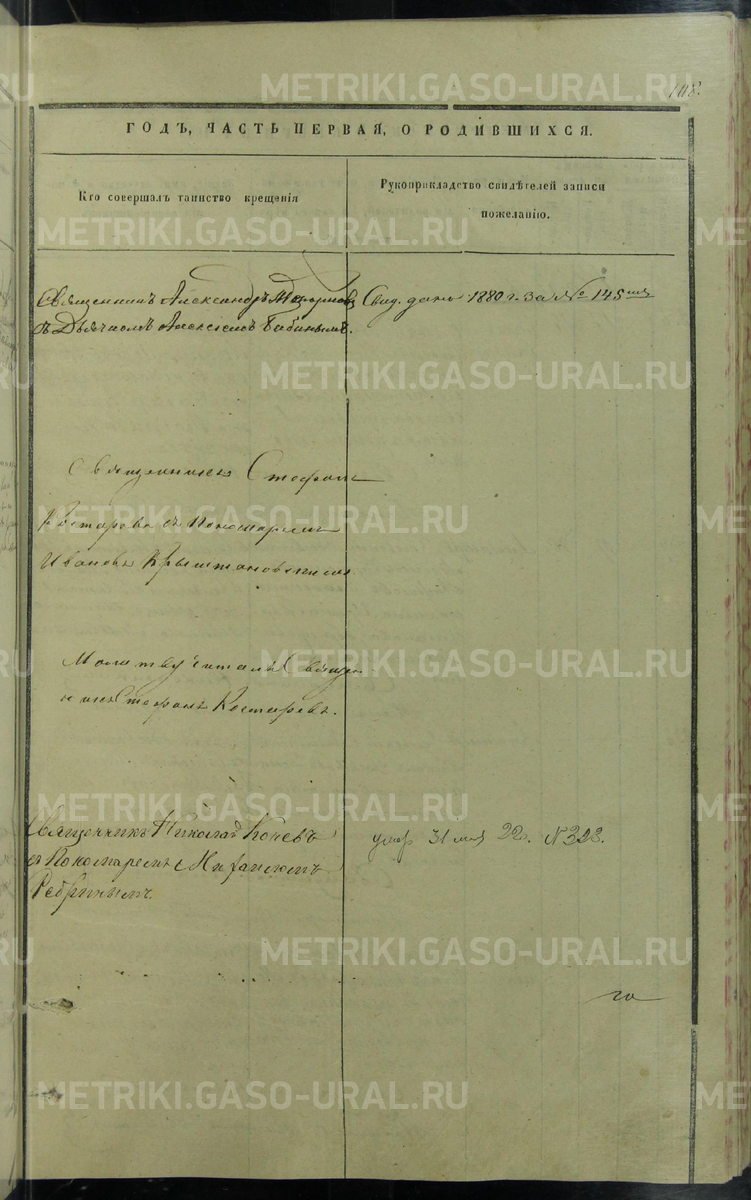 108.
ГОДЪ, ЧАСТЬ ПЕРВАЯ, О РОДИВШИХСЯ.
Кто совершалъ таинство крещенія
Рукоприкладство свидѣтелей записи
пожеланію.
Священникъ Александръ
съ Дьячкомъ Алексеемъ Бабинымъ.
Свид. дано 1880 г. за № 145
Священникъ Стефанъ
Костаревъ съ Пономаремъ
Иваномъ Крыштановскимъ
Молитву читалъ Священ
никъ Стефанъ Костаревъ.
Священникъ Николай Коневъ
съ Пономаремъ
Ребринымъ.
умер 31 мая 22 г. N 328.
METRIKI.GASO-URAL.RU